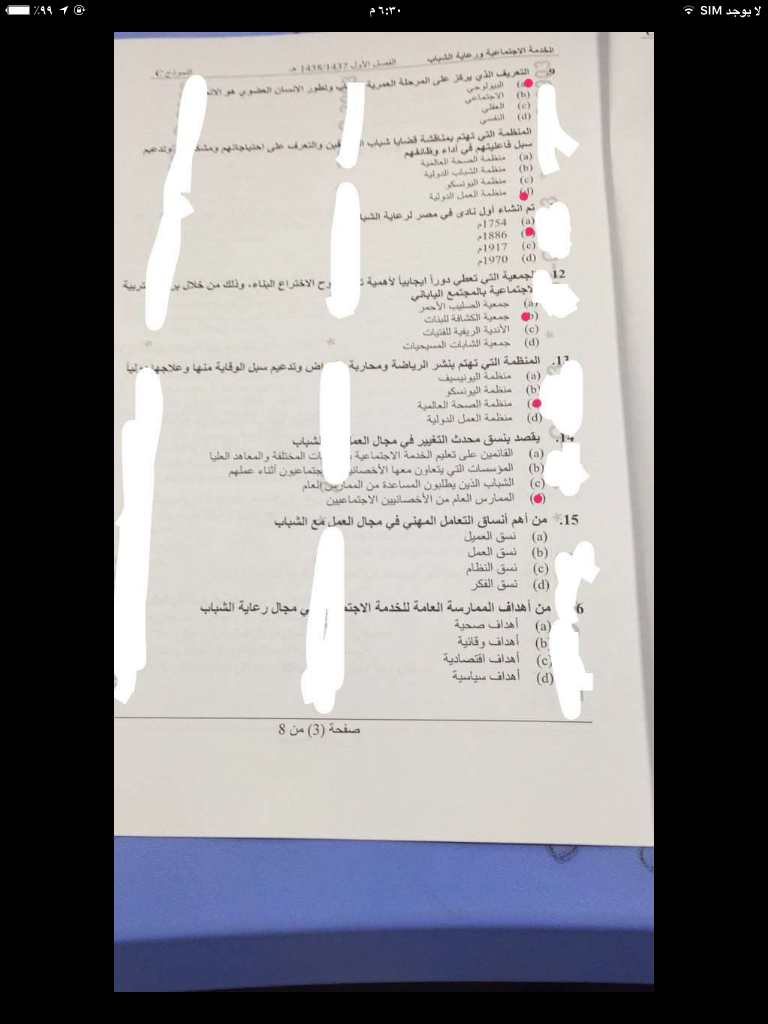 لا يوجد SIM
٦:٣٠ م
٪٩٩
الخدمة الاجتماعية ورعاية الشباب الفصل الأول 1438/1437 هـ النموذج C
9. التعريف الذي يركز على المرحلة العمرية وتطور الانسان العضوي هو
البيولوجي
(b) الاجتماعي
(c) العقلي
(d) النفسي
المنظمة التي تهتم بمناقشة قضايا شباب والتعرف على احتياجاتهم وتدعيم
سبل فاعليتهم في أداء وظائفهم
(a) منظمة الصحة العالمية
(b) منظمة الشباب الدولية
(c) منظمة اليونسكو
(d) منظمة العمل الدولية
تم انشاء أول نادى في مصر لرعاية
(a) 1754م
1886م
(c) 1917م
(d) 1970م
12 الجمعية التي تعطي دوراً ايجابياً لأهمية روح الاختراع البناء، وذلك من خلال
الاجتماعية بالمجتمع الياباني
(a) جمعية الصليب الأحمر
(b) جمعية الكشافة للبنات
(c) الأندية الريفية للفتيات
(d) جمعية الشابات المسيحيات
13. المنظمة التي تهتم بنشر الرياضة ومحاربة وتدعيم سبل الوقاية منها وعلاجها دولياً
(a) منظمة اليونيسيف
(b) منظمة اليونسكو
منظمة الصحة العالمية
(d) منظمة العمل الدولية
14. يقصد بنسق محدث التغيير في مجال الشباب
(a) القائمين على تعليم الخدمة الاجتماعية المختلفة والمعاهد العليا
(b) المؤسسات التي يتعاون معها الأخصائيون الاجتماعيون أثناء عملهم
(c) الشباب الذين يطلبون المساعدة من الممارس العام
الممارس العام من الأخصائيين الاجتماعيين
15. من أهم أنساق التعامل المهني في مجال العمل مع الشباب
(a) نسق العميل
(b) نسق العمل
(c) نسق النظام
(d) نسق الفكر
6 من أهداف الممارسة العامة للخدمة في مجال رعاية الشباب
(a) أهداف صحية
(b) أهداف وقائية
(c) أهداف اقتصادية
(d) أهداف سياسية
صفحة (3) من 8